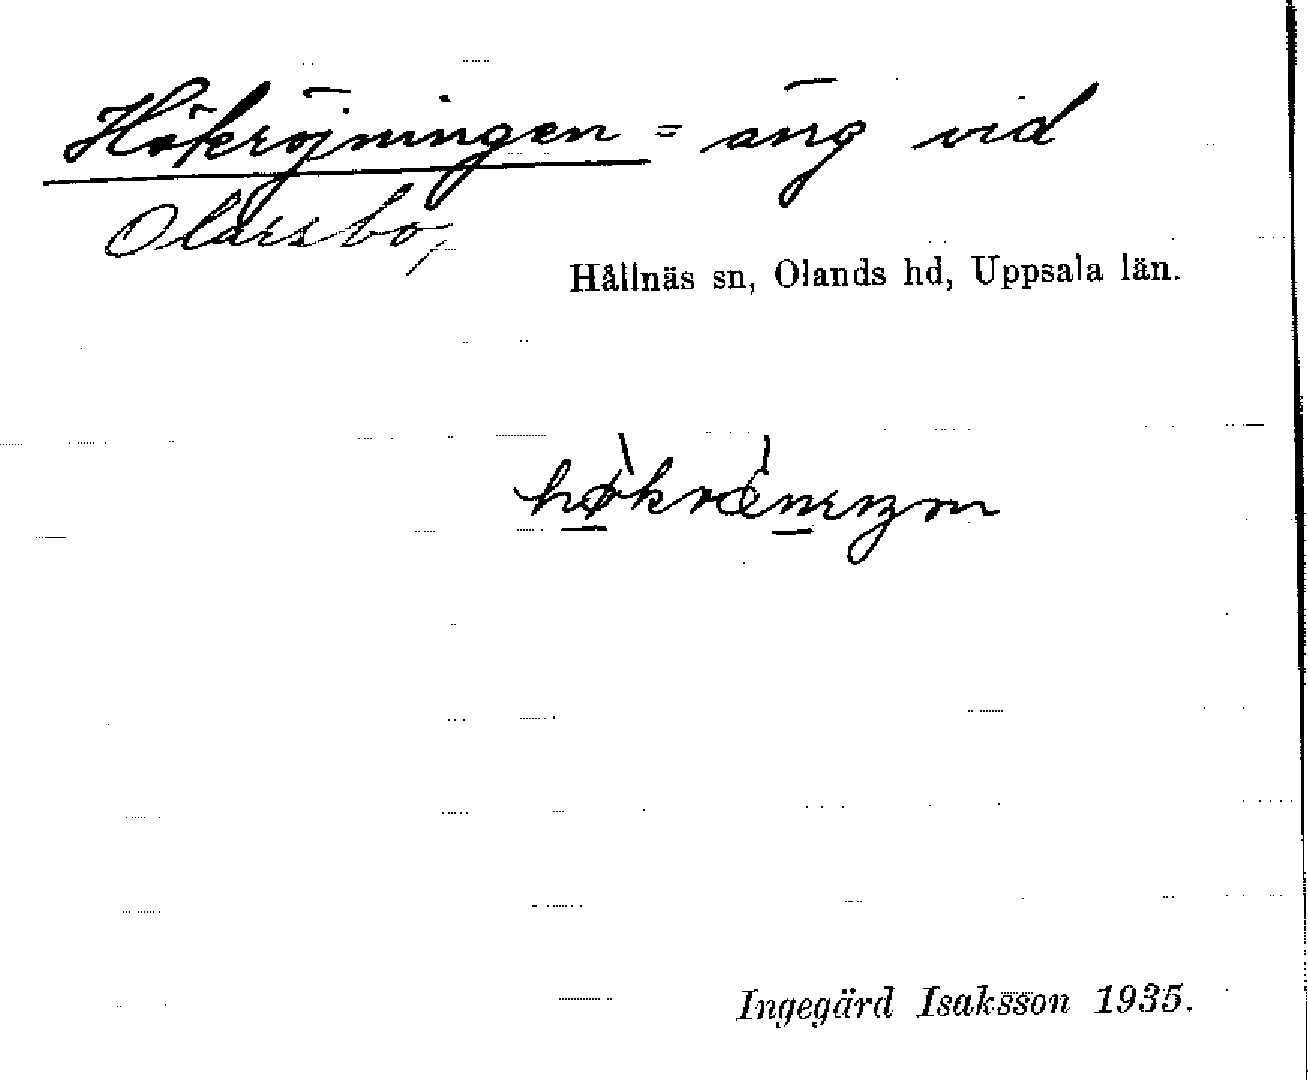 Hökröjningen = äng vid
Olarsbo,
Hållnäs sn, Olands hd, Uppsala län.
Ingegärd Isaksson 1935.